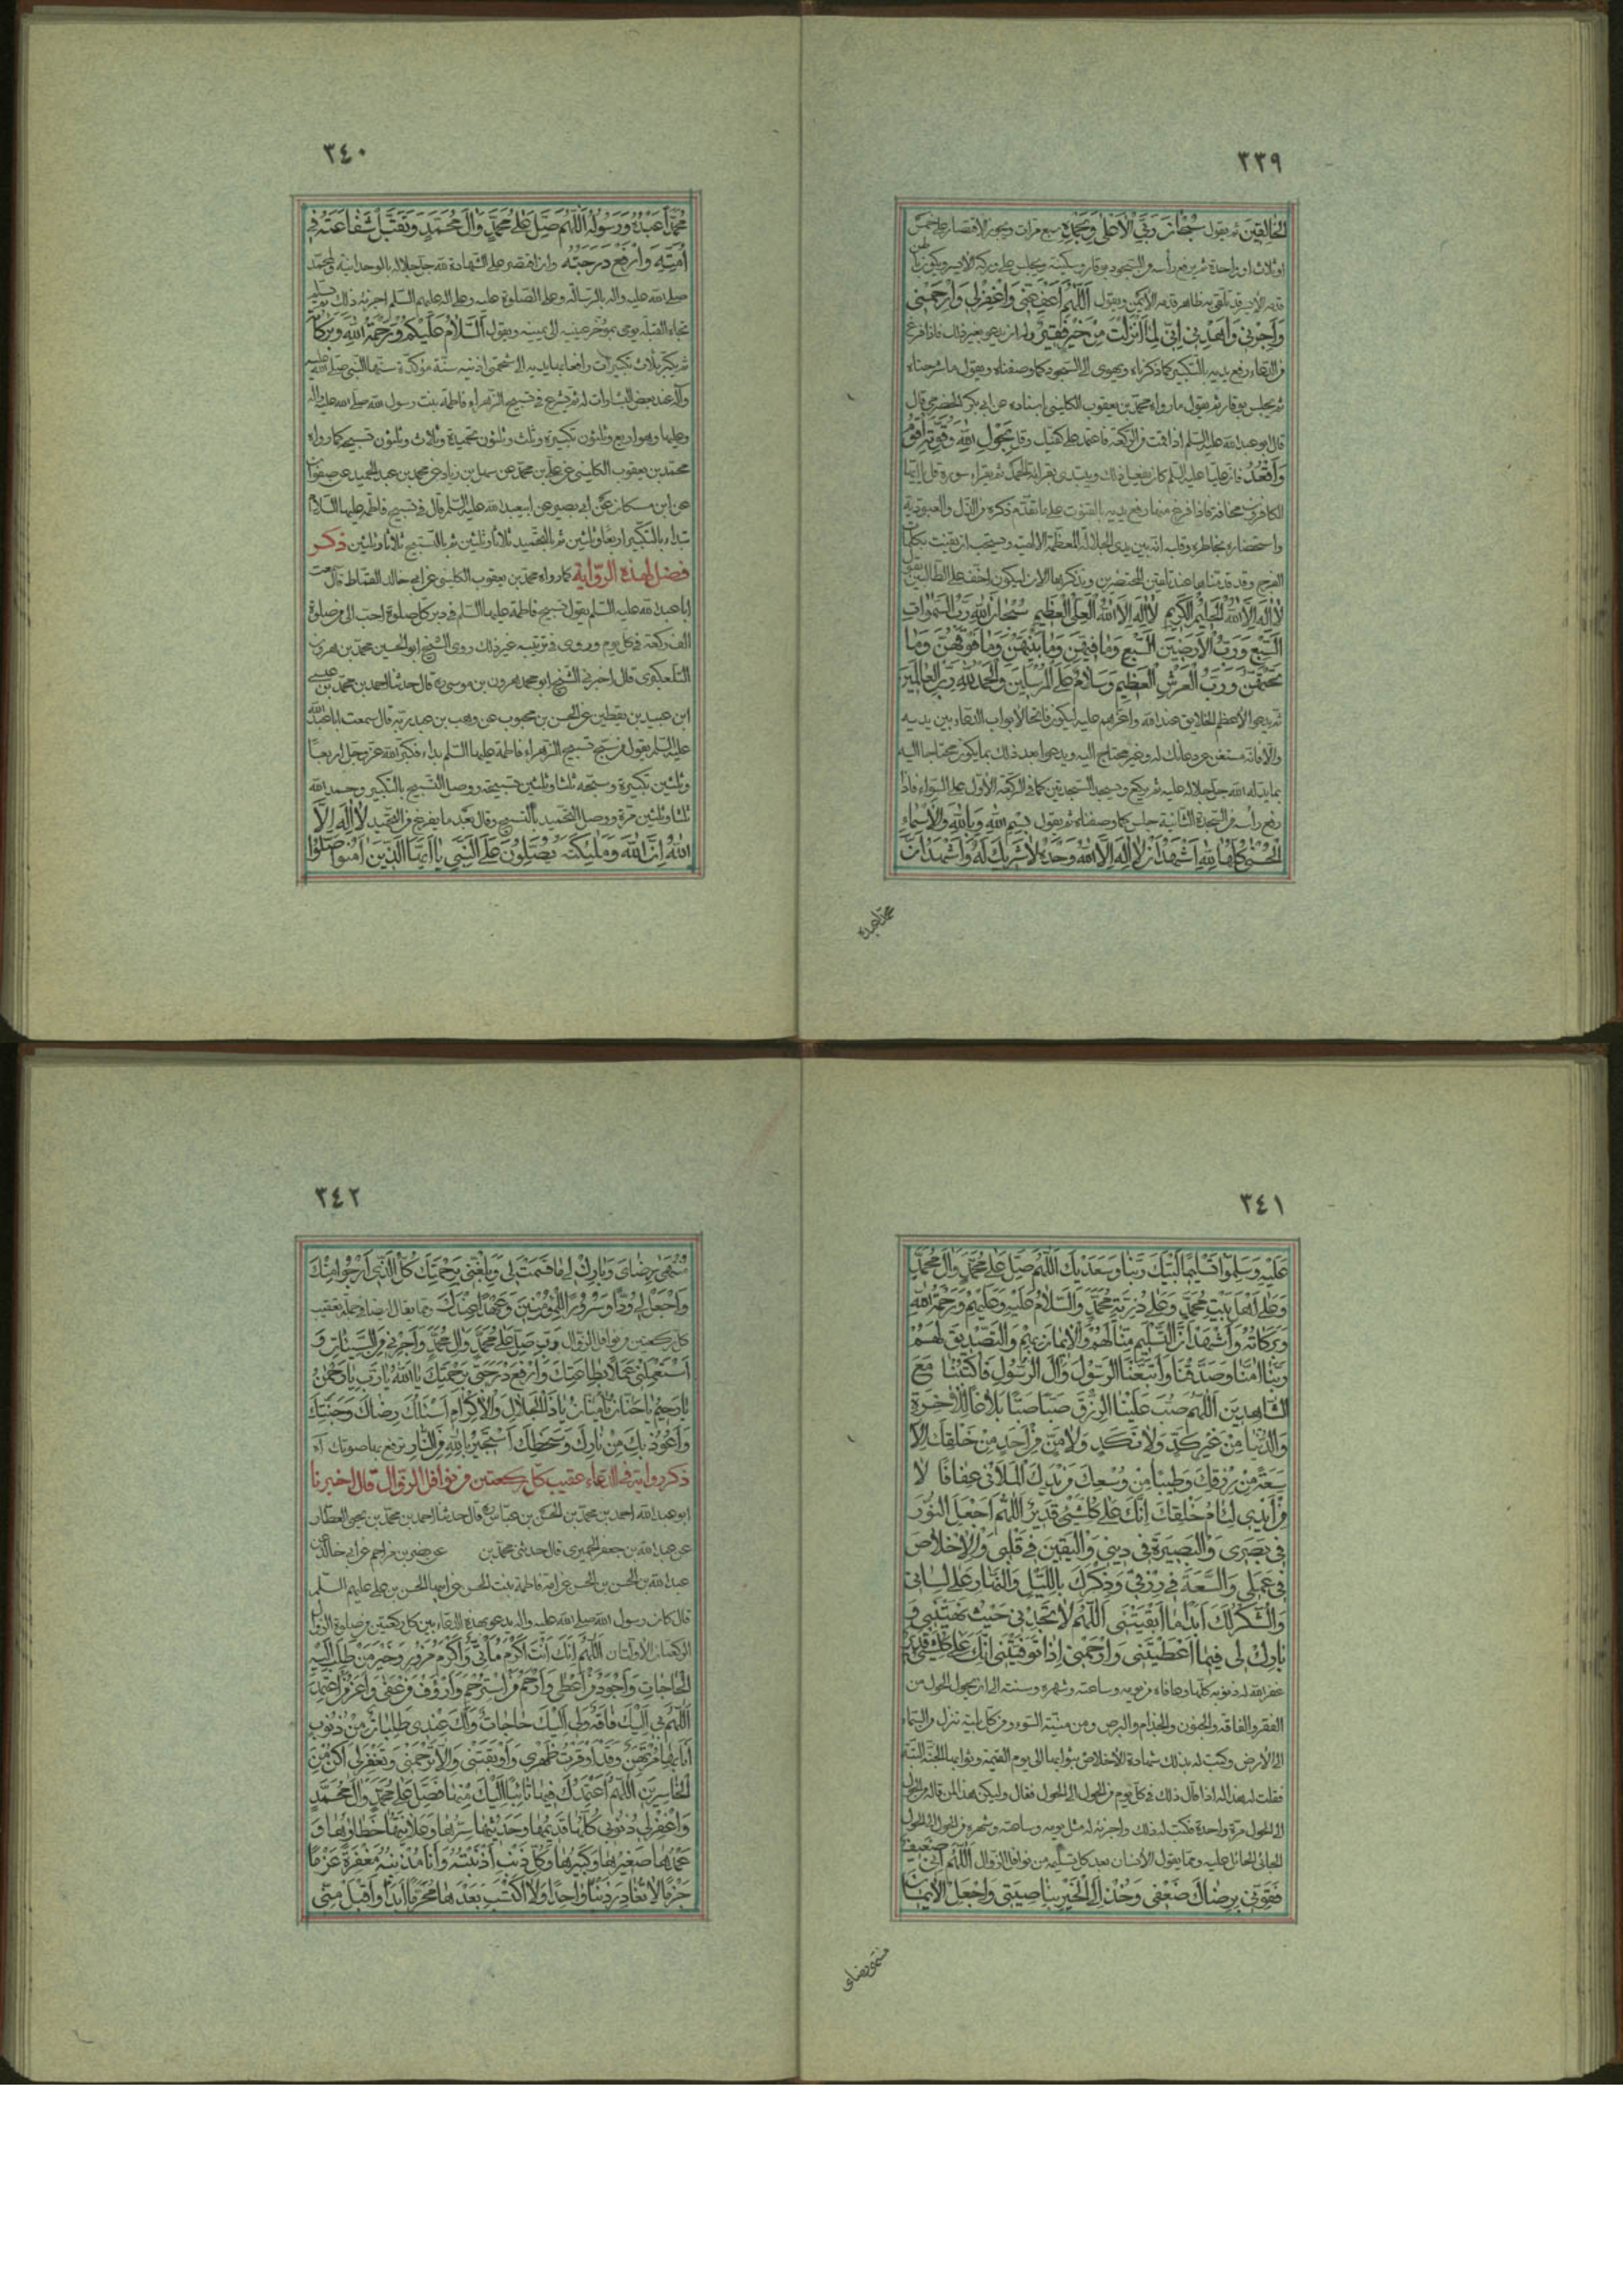 ٣٣٩
الخالقين ثم يقول سُبْحَانَ رَبِّيَ الْأَعْلَىٰ وَبِحَمْدِهِ سبع مرات ويجوز الاقتصار على خمس
او ثلاث او واحدة ثم يرفع رأسه من السجود بوقار وسكينة ويجلس على وركه الايسر ويكون
قدمه الايمن ويقول اَللّٰهُمَّ اعْفُ عَنِّي وَاغْفِرْ لِي وَارْحَمْنِي
وَاجْبُرْنِي وَاهْدِنِي اِنِّي لِمَا اَنْزَلْتَ مِنْ خَيْرٍ فَقِيرٌ وله ان يدعو بغير ذلك فاذا فرغ
من الدعاء رفع يديه بالتكبير كما ذكرناه ويهوى الى السجود كما وصفناه ويقول ما شرحناه
ثم يجلس بوقار ثم يقول ما رواه محمد بن يعقوب الكليني باسناده عن ابي بكر الحضرمي قال
قال ابو عبد الله عليه السلم اذا قمت من الركعة فاعتمد على كفيك وقل بِحَوْلِ اللّٰهِ وَقُوَّتِهِ اَقُومُ
وَاَقْعُدُ فان عليا عليه السلم كان يفعل ذلك ويبتدى بقراءة الحمد ثم يقراء سورة قل يا ايها
الكافرون مخافتة فاذا فرغ منها رفع يديه بالقنوت على ما تقدم ذكره من الذل والعبودية
واستحضاره بخاطره وقلبه انه بين يدى الجلالة المعظمة الالهية ويستحب ان يقنت بكلمات
الفرج وقد قدمناها عند تلقين المحتضرين ونذكرها الان ليكون اخف على الطالبين يقول
لَا اِلٰهَ اِلَّا اللّٰهُ الْحَلِيمُ الْكَرِيمُ لَا اِلٰهَ اِلَّا اللّٰهُ الْعَلِيُّ الْعَظِيمُ سُبْحَانَ اللّٰهِ رَبِّ السَّمٰوَاتِ
السَّبْعِ وَرَبِّ الْاَرَضِينَ السَّبْعِ وَمَا فِيهِنَّ وَمَا بَيْنَهُنَّ وَمَا فَوْقَهُنَّ وَمَا
تَحْتَهُنَّ وَرَبِّ الْعَرْشِ الْعَظِيمِ وَسَلَامٌ عَلَى الْمُرْسَلِينَ وَالْحَمْدُ لِلّٰهِ رَبِّ الْعَالَمِينَ
ثم يدعو لاعظم الخلايق عند الله واعزهم عليه ليكون فاتحا لابواب الدعاء بين يديه
والا فانه مستغن عن دعائك له وغير محتاج اليه ويدعو بعد ذلك بما يكون محتاجا اليه
بما يدله الله جل جلاله عليه ثم يركع ويسجد السجدتين كما في الركعة الاولى على السواء فاذا
رفع رأسه من السجدة الثانية جلس كما وصفناه ثم يقول بِسْمِ اللّٰهِ وَبِاللّٰهِ وَالْاَسْمَاءِ
الْحُسْنَىٰ كُلِّهَا لِلّٰهِ اَشْهَدُ اَنْ لَا اِلٰهَ اِلَّا اللّٰهُ وَحْدَهُ لَا شَرِيكَ لَهُ وَاَشْهَدُ اَنَّ
محمدا عبده
٣٤٠
مُحَمَّدًا عَبْدُهُ وَرَسُولُهُ اَللّٰهُمَّ صَلِّ عَلَىٰ مُحَمَّدٍ وَاٰلِ مُحَمَّدٍ وَتَقَبَّلْ شَفَاعَتَهُ فِي
اُمَّتِهِ وَارْفَعْ دَرَجَتَهُ وان اقتصر على الشهادة لله جل جلاله بالوحدانية ولمحمد
صلى الله عليه واله بالرسالة وعلى الصلوة عليه وعلى اله عليهم السلم اجزئه ذلك ثم يسلم
تجاه القبلة يومى بمؤخر عينيه الى يمينه ويقول اَلسَّلَامُ عَلَيْكُمْ وَرَحْمَةُ اللّٰهِ وَبَرَكَاتُهُ
ثم يكبر ثلاث تكبيرات رافعا بها يديه الى شحمتى اذنيه سنة مؤكدة سنها النبي صلى الله عليه
وآله عند بعض البشارات له ثم يشرع في تسبيح الزهراء فاطمة بنت رسول الله صلى الله عليه واله
وعليها وهو اربع وثلثون تكبيرة وثلث وثلثون تحميدة وثلاث وثلثون تسبيحة كما رواه
محمد بن يعقوب الكليني عن علي بن محمد عن سهل بن زياد عن محمد بن عبد الحميد عن صفوان
عن ابن مسكان عن ابي بصير عن ابيعبد الله عليه السلم قال في تسبيح فاطمة عليها السلام
تبداء بالتكبير اربعا وثلثين ثم بالتحميد ثلاثا وثلثين ثم بالتسبيح ثلاثا وثلثين ذكر
فضل لهذه الرواية كما رواه محمد بن يعقوب الكليني عن ابي خالد القماط قال سمعت
ابا عبد الله عليه السلم يقول تسبيح فاطمة عليها السلم في دبر كل صلوة احب الى من صلوة
الف ركعة في كل يوم وروى في ترتيبه غير ذلك روى الشيخ ابو الحسين محمد بن هرون
التلعكبرى قال اخبرني الشيخ ابو محمد هرون بن موسى ره قال حدثنا احمد بن محمد بن عيسى
ابن عبيد بن يقطين عن الحسن بن محبوب عن وهب بن عبد ربه قال سمعت ابا عبد الله
عليه السلم يقول من سبح تسبيح الزهراء فاطمة عليها السلم بداء فكبر الله عز وجل اربعا
وثلثين تكبيرة وسبحه ثلثا وثلثين تسبيحة ووصل التسبيح بالتكبير وحمد الله
ثلثا وثلثين مرة ووصل التحميد بالتسبيح وقال بعد ما يفرغ من التحميد لَا اِلٰهَ اِلَّا
اللّٰهُ اِنَّ اللّٰهَ وَمَلٰئِكَتَهُ يُصَلُّونَ عَلَى النَّبِيِّ يَا اَيُّهَا الَّذِينَ اٰمَنُوا صَلُّوا
٣٤١
عَلَيْهِ وَسَلِّمُوا تَسْلِيمًا لَبَّيْكَ رَبَّنَا وَسَعْدَيْكَ اَللّٰهُمَّ صَلِّ عَلَىٰ مُحَمَّدٍ وَاٰلِ مُحَمَّدٍ
وَعَلَىٰ اَهْلِ بَيْتِ مُحَمَّدٍ وَعَلَىٰ ذُرِّيَّةِ مُحَمَّدٍ وَالسَّلَامُ عَلَيْهِ وَعَلَيْهِمْ وَرَحْمَةُ اللّٰهِ
وَبَرَكَاتُهُ وَاَشْهَدُ اَنَّ التَّسْلِيمَ مِنَّا لَهُمْ وَالْاِيمَانَ بِهِمْ وَالتَّصْدِيقَ لَهُمْ
رَبَّنَا اٰمَنَّا وَصَدَّقْنَا وَاتَّبَعْنَا الرَّسُولَ وَاٰلَ الرَّسُولِ فَاكْتُبْنَا مَعَ
الشَّاهِدِينَ اَللّٰهُمَّ صُبَّ عَلَيْنَا الرِّزْقَ صَبًّا صَبًّا بَلَاغًا لِلْاٰخِرَةِ
وَالدُّنْيَا مِنْ غَيْرِ كَدٍّ وَلَا نَكَدٍ وَلَا مَنٍّ مِنْ اَحَدٍ مِنْ خَلْقِكَ اِلَّا
سَعَةً مِنْ رِزْقِكَ وَطَيِّبًا مِنْ وُسْعِكَ مِنْ يَدِكَ الْمَلْاٰى عَفَافًا لَا
مِنْ اَيْدِي لِئَامِ خَلْقِكَ اِنَّكَ عَلَىٰ كُلِّ شَيْءٍ قَدِيرٌ اَللّٰهُمَّ اجْعَلِ النُّورَ
فِي بَصَرِي وَالْبَصِيرَةَ فِي دِينِي وَالْيَقِينَ فِي قَلْبِي وَالْاِخْلَاصَ
فِي عَمَلِي وَالسَّعَةَ فِي رِزْقِي وَذِكْرَكَ بِاللَّيْلِ وَالنَّهَارِ عَلَىٰ لِسَانِي
وَالشُّكْرَ لَكَ اَبَدًا مَا اَبْقَيْتَنِي اَللّٰهُمَّ لَا تَجِدْنِي حَيْثُ نَهَيْتَنِي وَ
بَارِكْ لِي فِيمَا اَعْطَيْتَنِي وَارْحَمْنِي اِذَا تَوَفَّيْتَنِي اِنَّكَ عَلَىٰ كُلِّ شَيْءٍ قَدِيرٌ
غفر الله له ذنوبه كلها وعافاه من يومه وساعته وشهره وسنته الى ان يحول الحول من
الفقر والفاقة والجنون والجذام والبرص ومن ميتة السوء ومن كل بلية تنزل من السماء
الى الارض وكتب له بذلك شهادة الاخلاص بثوابها الى يوم القيمة وثوابها الجنة البتة
فقلت له هذا له اذا قال ذلك في كل يوم من الحول الى الحول فقال ولكن هذا لمن قاله من الحول
الى الحول مرة واحدة فكتب له ذلك واجزئه له مثل يومه وساعته وشهره من الحول الى الحول
الجائى الحائل عليه ومما يقول الانسان بعد كل تسليمة من نوافل الزوال اَللّٰهُمَّ اِنِّي ضَعِيفٌ
فَقَوِّنِي بِرِضَاكَ ضَعْفِي وَخُذْ اِلَى الْخَيْرِ بِنَاصِيَتِي وَاجْعَلِ الْاِيمَانَ
منتهى رضاى
٣٤٢
مُنْتَهَىٰ رِضَايَ وَبَارِكْ لِي فِيمَا قَسَمْتَ لِي وَبَلِّغْنِي بِرَحْمَتِكَ كُلَّ الَّذِي اَرْجُو مِنْكَ
وَاجْعَلْ لِي وُدًّا وَسُرُورًا لِلْمُؤْمِنِينَ وَعَهْدًا عِنْدَكَ ومما يقال ايضا في جملة تعقيب
كل ركعتين من نوافل الزوال رب صَلِّ عَلَىٰ مُحَمَّدٍ وَاٰلِ مُحَمَّدٍ وَاَجِرْنِي مِنَ السَّيِّئَاتِ وَ
اسْتَعْمِلْنِي عَمَلًا بِطَاعَتِكَ وَارْفَعْ دَرَجَتِي بِرَحْمَتِكَ يَا اَللّٰهُ يَا رَبِّ يَا رَحْمٰنُ
يَا رَحِيمُ يَا حَنَّانُ يَا مَنَّانُ يَا ذَا الْجَلَالِ وَالْاِكْرَامِ اَسْئَلُكَ رِضَاكَ وَجَنَّتَكَ
وَاَعُوذُ بِكَ مِنْ نَارِكَ وَسَخَطِكَ اَسْتَجِيرُ بِاللّٰهِ مِنَ النَّارِ ترفع بها صوتك
ذكر رواية في الدعاء عقيب كل ركعتين من نوافل الزوال قال اخبرنا
ابو عبد الله احمد بن محمد بن الحسن بن عياش قال حدثنا احمد بن محمد بن يحيى العطار
عن عبد الله بن جعفر الحميرى قال حدثنى محمد بن عن نصر بن مزاحم عن ابي خالد عن
عبد الله بن الحسن بن الحسن عن امه فاطمة بنت الحسن عن ابيها الحسن بن علي عليهم السلم
قال كان رسول الله صلى الله عليه واله يدعو بهذه الدعاء بين كل ركعتين من صلوة الزوال
الركعتان الاولتان اَللّٰهُمَّ اِنَّكَ اَنْتَ اَكْرَمُ مَأْتِيٍّ وَاَكْرَمُ مَزُورٍ وَخَيْرُ مَنْ طُلِبَ اِلَيْهِ
الْحَاجَاتُ وَاَجْوَدُ مَنْ اَعْطَىٰ وَاَرْحَمُ مَنِ اسْتُرْحِمَ وَاَرْؤَفُ مَنْ عَفَىٰ وَاَعَزُّ مَنِ اعْتُمِدَ
اَللّٰهُمَّ بِي اِلَيْكَ فَاقَةٌ وَلِي اِلَيْكَ حَاجَاتٌ وَلَكَ عِنْدِي طَلِبَاتٌ مِنْ ذُنُوبٍ
اَنَا بِهَا مُرْتَهَنٌ وَقَدْ اَوْقَرْتُ ظَهْرِي وَاَوْبَقَتْنِي وَاِلَّا تَرْحَمْنِي وَتَغْفِرْ لِي اَكُنْ مِنَ
الْخَاسِرِينَ اَللّٰهُمَّ اعْتَمَدْتُكَ فِيهَا تَائِبًا اِلَيْكَ مِنْهَا فَصَلِّ عَلَىٰ مُحَمَّدٍ وَاٰلِ مُحَمَّدٍ
وَاغْفِرْ لِي ذُنُوبِي كُلَّهَا قَدِيمَهَا وَحَدِيثَهَا سِرَّهَا وَعَلَانِيَتَهَا خَطَاؤَهَا وَ
عَمْدَهَا صَغِيرَهَا وَكَبِيرَهَا وَكُلَّ ذَنْبٍ اَذْنَبْتُهُ وَاَنَا مُذْنِبُهُ مَغْفِرَةً عَزْمًا
جَزْمًا لَا تُغَادِرُ ذَنْبًا وَاحِدًا وَلَا اَكْتَسِبُ بَعْدَهَا مُحَرَّمًا اَبَدًا وَاقْبَلْ مِنِّي